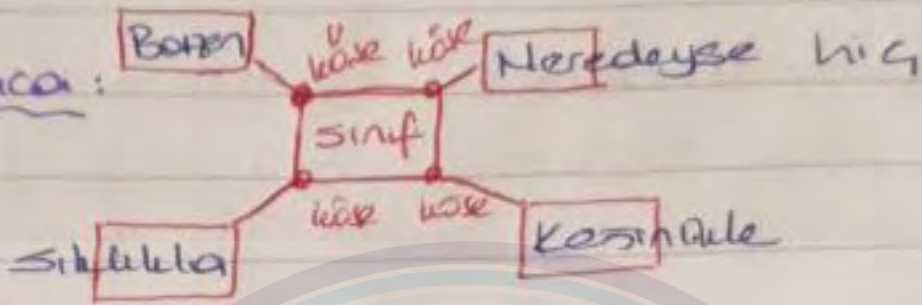 Bazen köşe köşe Neredeyse hiç
sınıf
köşe köşe
Sıklıkla Kesinlikle